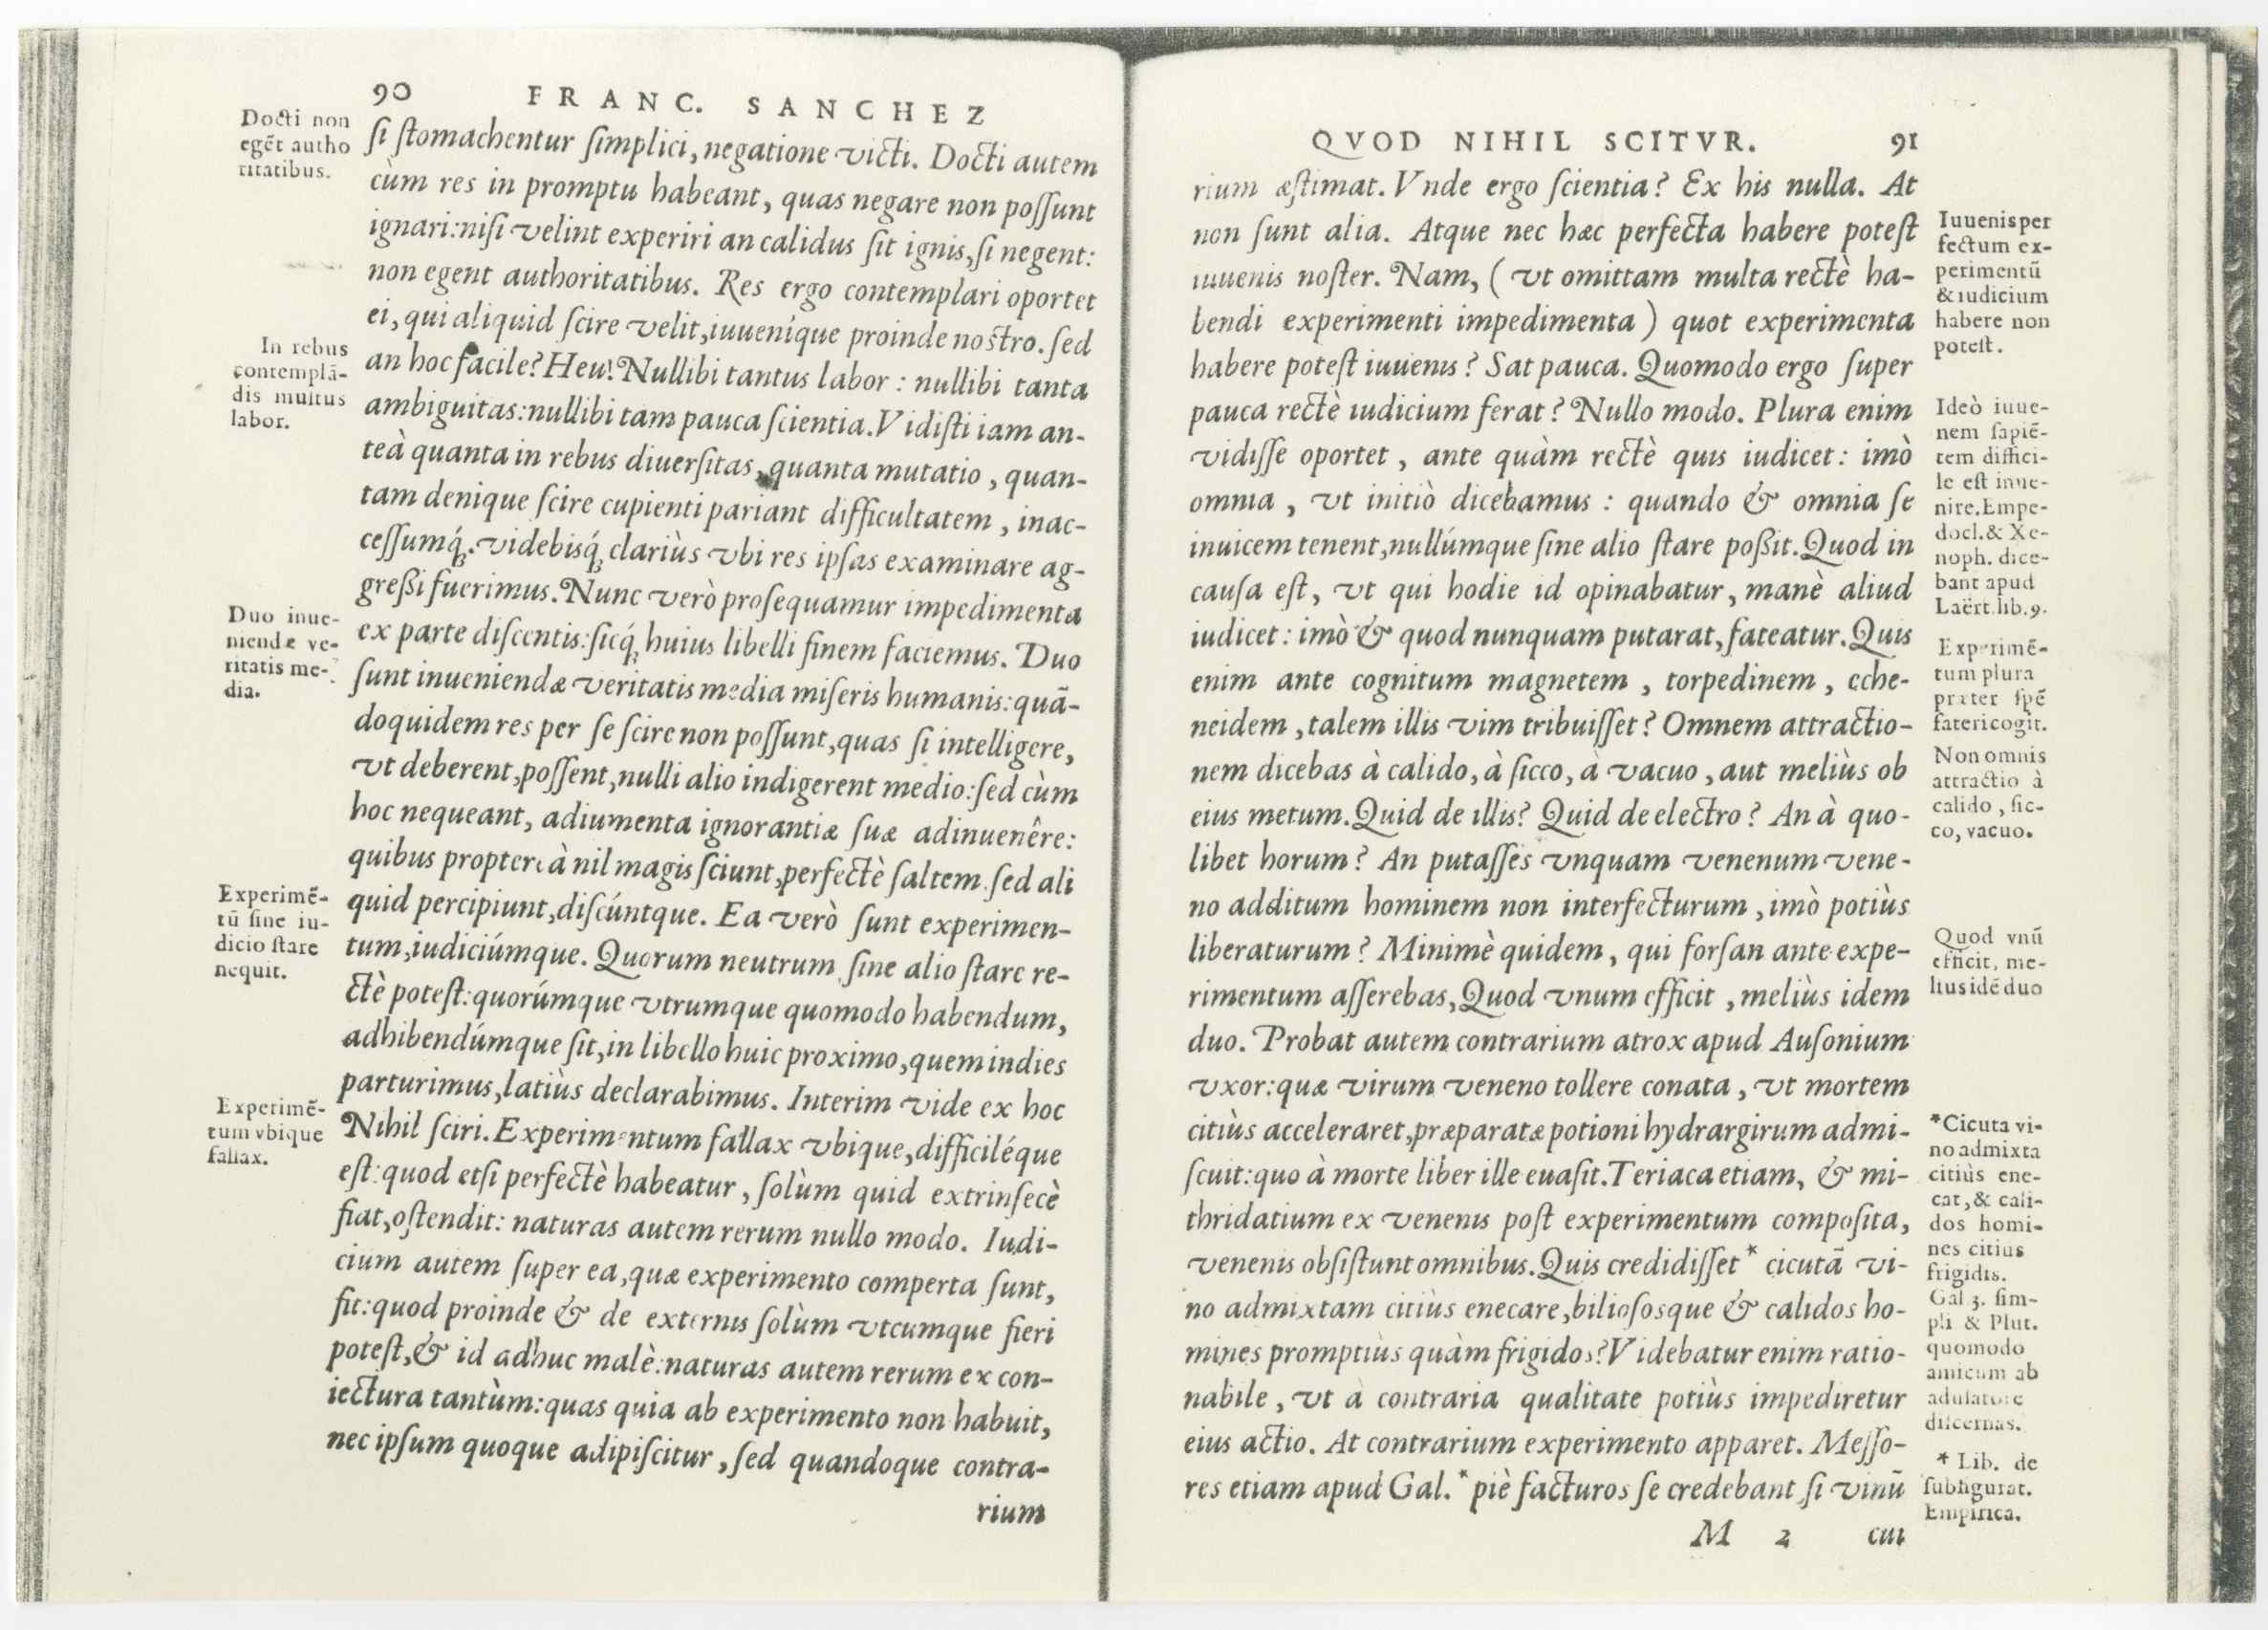 90 FRANC. SANCHEZ
Docti non
egēt autho
ritatibus.
si stomachentur simplici, negatione victi. Docti autem
cùm res in promptu habeant, quas negare non possunt
ignari: nisi velint experiri an calidus sit ignis, si negent:
non egent authoritatibus. Res ergo contemplari oportet
ei, qui aliquid scire velit, iuueníque proinde nostro. sed
In rebus
contemplā-
dis multus
labor.
an hoc facile? Heu! Nullibi tantus labor: nullibi tanta
ambiguitas: nullibi tam pauca scientia. Vidisti iam an-
teà quanta in rebus diuersitas, quanta mutatio, quan-
tam denique scire cupienti pariant difficultatem, inac-
cessumq́;. videbisq́; clariùs vbi res ipsas examinare ag-
greßi fuerimus. Nunc verò prosequamur impedimenta
Duo inue-
niendæ ve-
ritatis me-
dia.
ex parte discentis: sicq́; huius libelli finem faciemus. Duo
sunt inueniendæ veritatis media miseris humanis: quā-
doquidem res per se scire non possunt, quas si intelligere,
vt deberent, possent, nulli alio indigerent medio: sed cùm
hoc nequeant, adiumenta ignorantiæ suæ adinuenêre:
quibus propterea à nil magis sciunt, perfectè saltem. sed ali
Experimē-
tū sine iu-
dicio stare
nequit.
quid percipiunt, discúntque. Ea verò sunt experimen-
tum, iudiciúmque. Quorum neutrum sine alio stare re-
ctè potest: quorúmque vtrumque quomodo habendum,
adhibendúmque sit, in libello huic proximo, quem indies
parturimus, latiùs declarabimus. Interim vide ex hoc
Experimē-
tum vbique
fallax.
Nihil sciri. Experimentum fallax vbique, difficiléque
est: quod etsi perfectè habeatur, solùm quid extrinsecè
fiat, ostendit: naturas autem rerum nullo modo. Iudi-
cium autem super ea, quæ experimento comperta sunt,
fit: quod proinde & de externis solùm vtcumque fieri
potest, & id adhuc malè: naturas autem rerum ex con-
iectura tantùm: quas quia ab experimento non habuit,
nec ipsum quoque adipiscitur, sed quandoque contra-
rium
QVOD NIHIL SCITVR. 91
rium æstimat. Vnde ergo scientia? Ex his nulla. At
non sunt alia. Atque nec hæc perfecta habere potest
iuuenis noster. Nam, (vt omittam multa rectè ha-
bendi experimenti impedimenta) quot experimenta
habere potest iuuenis? Sat pauca. Quomodo ergo super
Iuuenis per
fectum ex-
perimentū
& iudicium
habere non
potest.
pauca rectè iudicium ferat? Nullo modo. Plura enim
vidisse oportet, ante quàm rectè quis iudicet: imò
omnia, vt initiò dicebamus: quando & omnia se
inuicem tenent, nullúmque sine alio stare poßit. Quod in
causa est, vt qui hodie id opinabatur, manè aliud
Ideò iuue-
nem sapiē-
tem diffici-
le est inue-
nire. Empe-
docl. & Xe-
noph. dice-
bant apud
Laërt. lib. 9.
iudicet: imò & quod nunquam putarat, fateatur. Quis
enim ante cognitum magnetem, torpedinem, eche-
neidem, talem illis vim tribuisset? Omnem attractio-
Experimē-
tum plura
præter spē
fateri cogit.
nem dicebas à calido, à sicco, à vacuo, aut meliùs ob
eius metum. Quid de illis? Quid de electro? An à quo-
Non omnis
attractio à
calido, sic-
co, vacuo.
libet horum? An putasses vnquam venenum vene-
no additum hominem non interfecturum, imò potiùs
liberaturum? Minimè quidem, qui forsan ante expe-
rimentum asserebas, Quod vnum efficit, meliùs idem
Quod vnū
efficit, me-
lius idē duo
duo. Probat autem contrarium atrox apud Ausonium
vxor: quæ virum veneno tollere conata, vt mortem
citiùs acceleraret, præparatæ potioni hydrargirum admi-
scuit: quo à morte liber ille euasit. Teriaca etiam, & mi-
thridatium ex venenis post experimentum composita,
venenis obsistunt omnibus. Quis credidisset * cicutā vi-
no admixtam citiùs enecare, biliososque & calidos ho-
mines promptiùs quàm frigidos? Videbatur enim ratio-
nabile, vt à contraria qualitate potiùs impediretur
eius actio. At contrarium experimento apparet. Messo-
res etiam apud Gal. * piè facturos se credebant si vinū
*Cicuta vi-
no admixta
citiùs ene-
cat, & cali-
dos homi-
nes citius
frigidis.
Gal 3. sim-
pli & Plut.
quomodo
amicum ab
adulatore
discernas.
* Lib. de
subfigurat.
Empirica.
M 2 cui